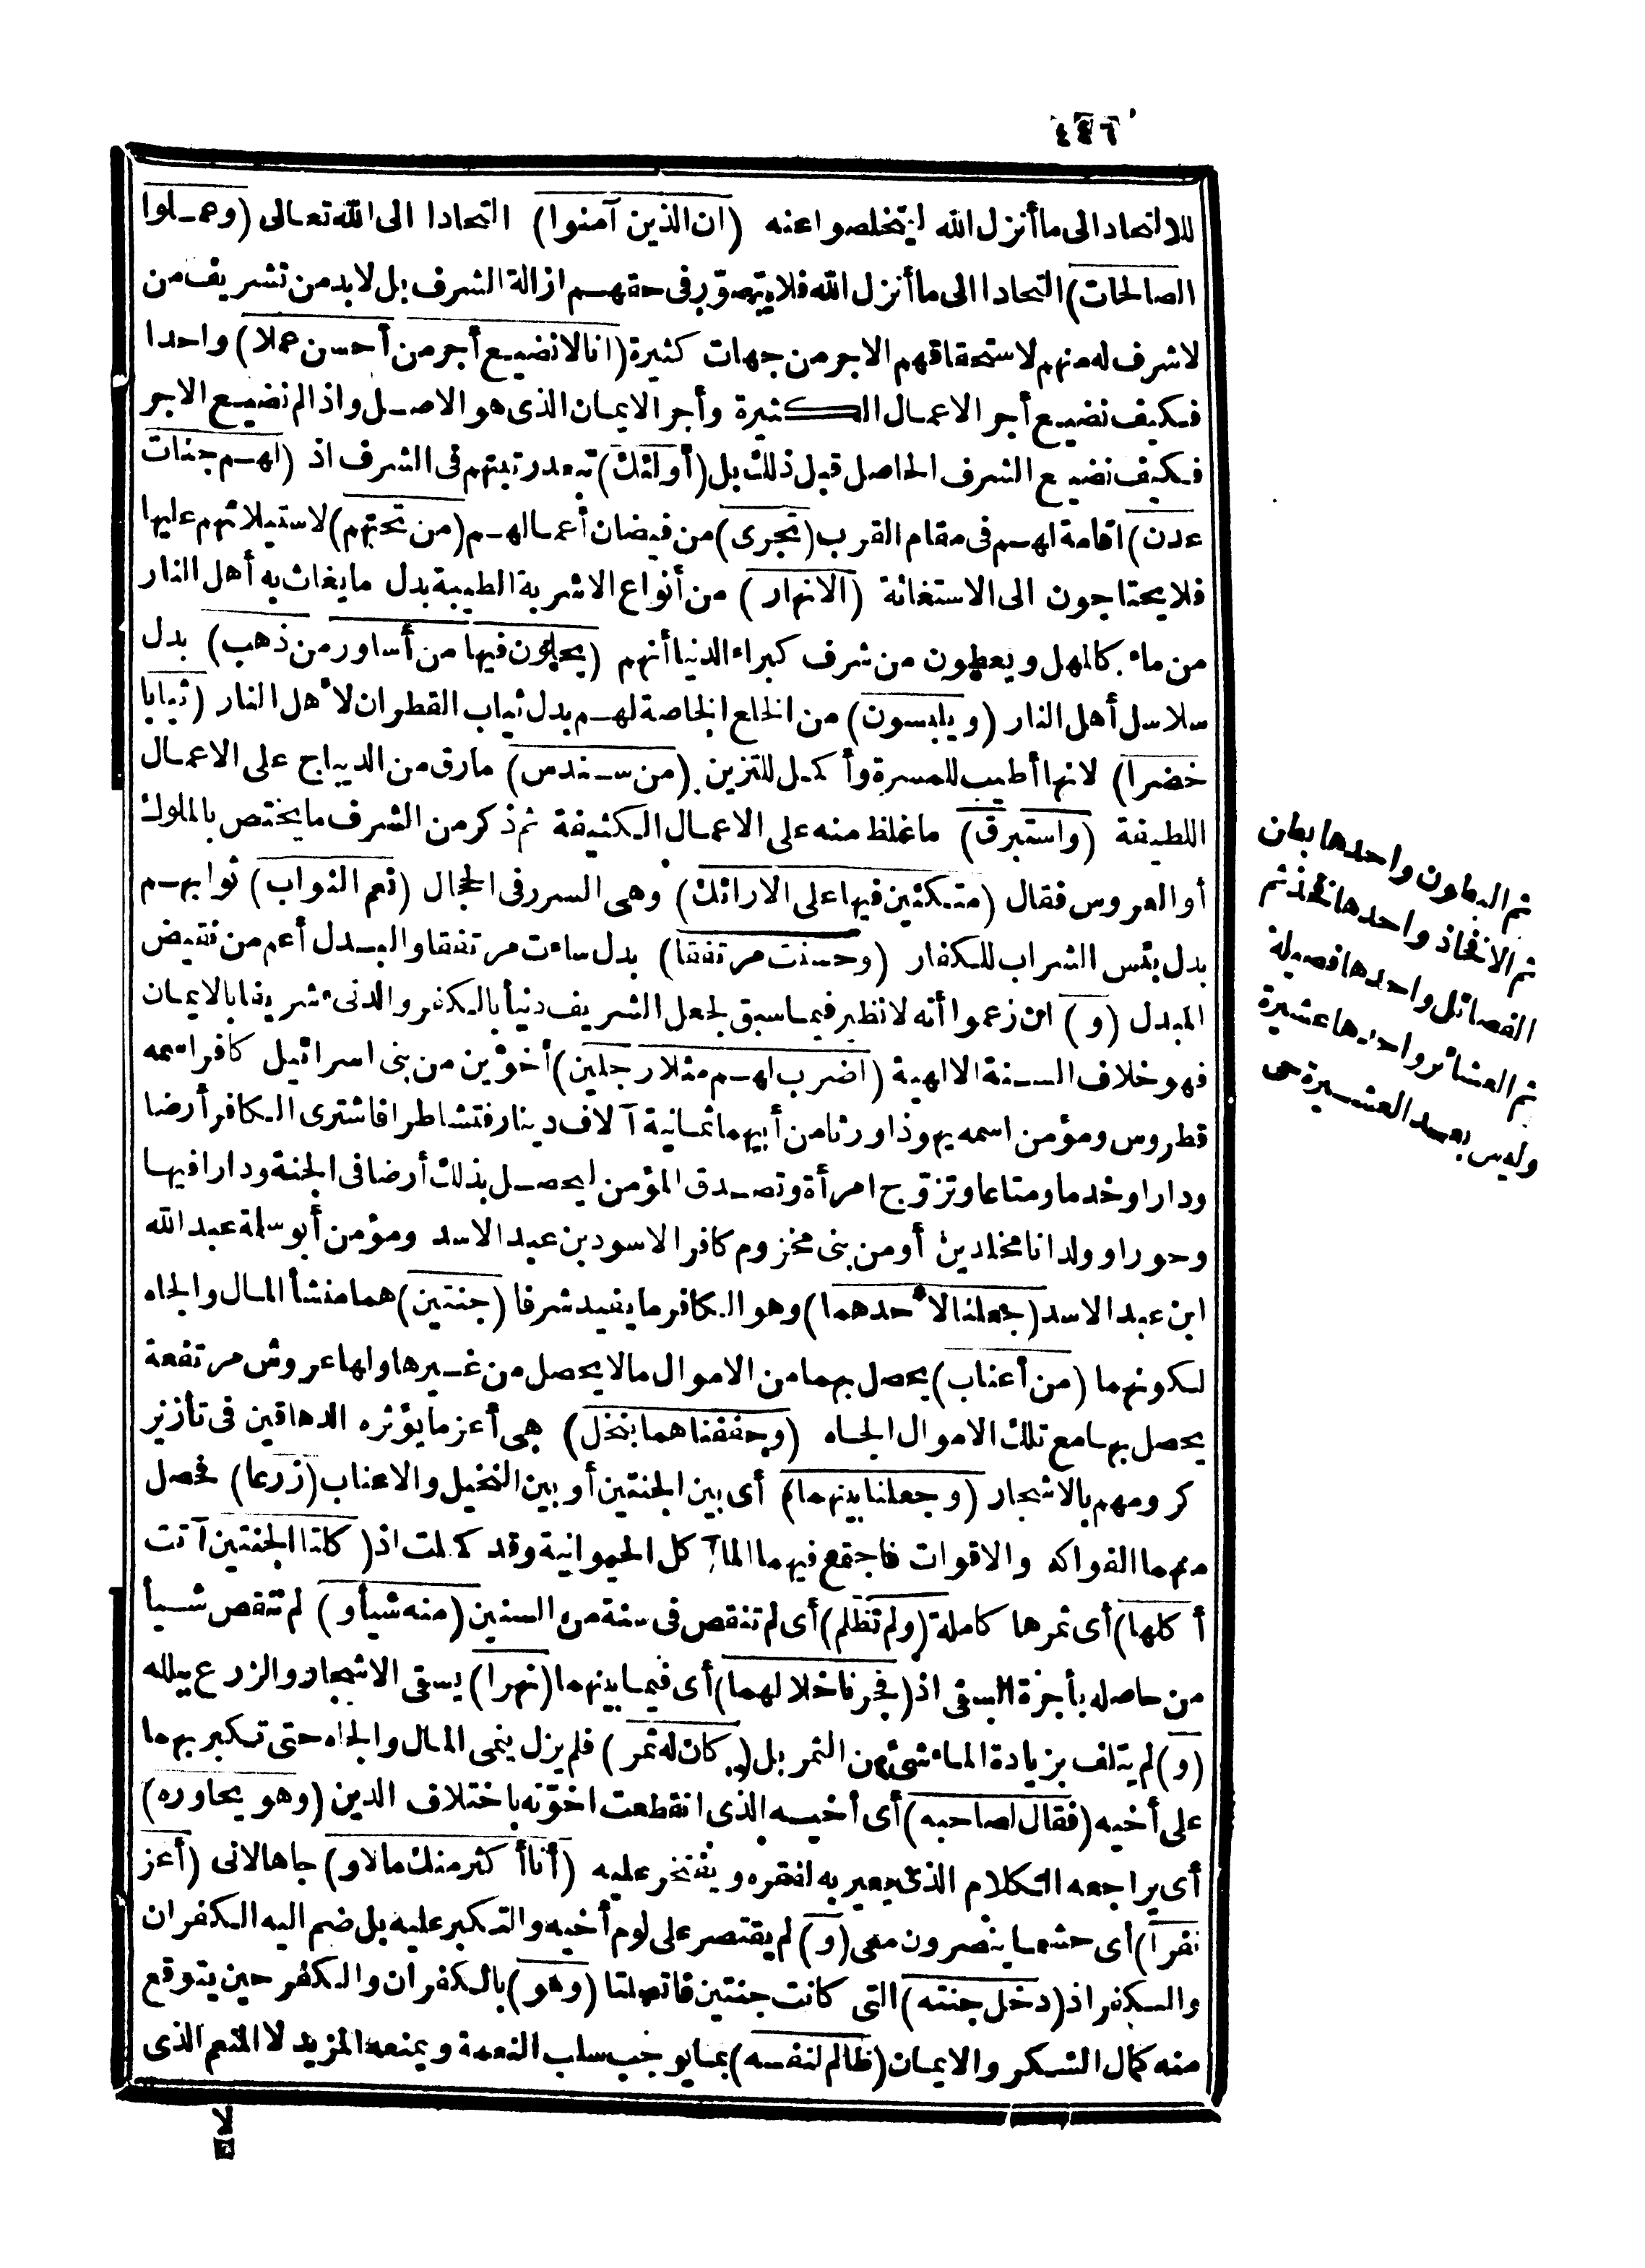 ٤٤٦
للالتحاد الى ما أنزل الله ليتخلصوا عنه (ان الذين آمنوا) التحادا الى الله تعالى (وعملوا
الصالحات) التحادا الى ما أنزل الله فلا يتصوّر فى حقهم ازالة الشرف بل لا بد من تشريف من
لا شرف له منهم لاستحقاقهم الاجر من جهات كثيرة (انا لا نضيع أجر من أحسن عملا) واحدا
فكيف نضيع أجر الاعمال الكثيرة وأجر الايمان الذى هو الاصل واذا لم نضيع الاجر
فكيف نضيع الشرف الحاصل قبل ذلك بل (أولئك) تبعد رتبتهم فى الشرف اذ (لهم جنات
عدن) اقامة لهم فى مقام القرب (تجرى) من فيضان أعمالهم (من تحتهم) لاستيلائهم عليها
فلا يحتاجون الى الاستغاثة (الانهار) من أنواع الاشربة الطيبة بدل ما يغاث به أهل النار
من ماء كالمهل ويعطون من شرف كبراء الدنيا أنهم (يحلون فيها من أساور من ذهب) بدل
سلاسل أهل النار (ويلبسون) من الخلع الخاصة لهم بدل ثياب القطران لأهل النار (ثيابا
خضرا) لانها أطيب للمسرة وأكمل للتزين (من سندس) مارق من الديباج على الاعمال
اللطيفة (واستبرق) ما غلظ منه على الاعمال الكثيفة ثم ذكر من الشرف ما يختص بالملوك
أو العروس فقال (متكئين فيها على الارائك) وهى السرر فى الحجال (نعم الثواب) ثوابهم
بدل بئس الشراب للكفار (وحسنت مرتفقا) بدل ساءت مرتفقا والبدل أعم من نقيض
المبدل (و) ان زعموا أنه لا نظير فيما سبق لجعل الشريف دنيأ بالكفر والدنىء شريفا بالايمان
فهو خلاف السنة الالهية (اضرب لهم مثلا رجلين) أخوين من بنى اسرائيل كافر اسمه
قطروس ومؤمن اسمه يهوذا ورثا من أبيهما ثمانية آلاف دينار فتشاطرا فاشترى الكافر أرضا
ودارا وخدما ومتاعا وتزوّج امرأة وتصدق المؤمن ليحصل بذلك أرضا فى الجنة ودارا فيها
وحورا وولدانا مخلدين أو من بنى مخزوم كافر الاسود بن عبد الاسد ومؤمن أبو سلمة عبد الله
ابن عبد الاسد (جعلنا لأحدهما) وهو الكافر ما يفيد شرفا (جنتين) هما منشأ المال والجاه
لكونهما (من أعناب) يحصل بهما من الاموال ما لا يحصل من غيرها ولها عروش مرتفعة
يحصل بها مع تلك الاموال الجاه (وحففناهما بنخل) هى أعز ما يؤثره الدهاقين فى تأزير
كرومهم بالاشجار (وجعلنا بينهما) أى بين الجنتين أو بين النخيل والاعناب (زرعا) فحصل
منهما الفواكه والاقوات فاجتمع فيهما المآكل الحيوانية وقد كملت اذ (كلتا الجنتين آتت
أكلها) أى ثمرها كاملة (ولم تظلم) أى لم تنقص فى سنة من السنين (منه شيأ و) لم تنقص شيأ
من حاصله بأجرة السقى اذ (فجرنا خلالهما) أى فيما بينهما (نهرا) يسقى الاشجار والزرع ببلله
(و) لم يتلف بزيادة الماء شئ من الثمر بل (كان له ثمر) فلم يزل ينمى المال والجاه حتى تكبر بهما
على أخيه (فقال لصاحبه) أى أخيه الذى انقطعت اخوّته باختلاف الدين (وهو يحاوره)
أى يراجعه الكلام الذى يعير به لفقره ويفتخر عليه (أنا أكثر منك مالا و) جاها لانى (أعز
نفرا) أى حشما ينصرون معى (و) لم يقتصر على لوم أخيه والتكبر عليه بل ضم اليه الكفران
والكفر اذ (دخل جنته) التى كانت جنتين فاتصلتا (وهو) بالكفران والكفر حين يتوقع
منه كمال الشكر والايمان (ظالم لنفسه) بما يوجب سلب النعمة ويمنعه المزيد لا المنعم الذى
لا
ثم البطون واحدها بطن
ثم الافخاذ واحدها فخذ ثم
الفصائل واحدها فصيلة
ثم العشائر واحدها عشيرة
وليس بعد العشيرة حى